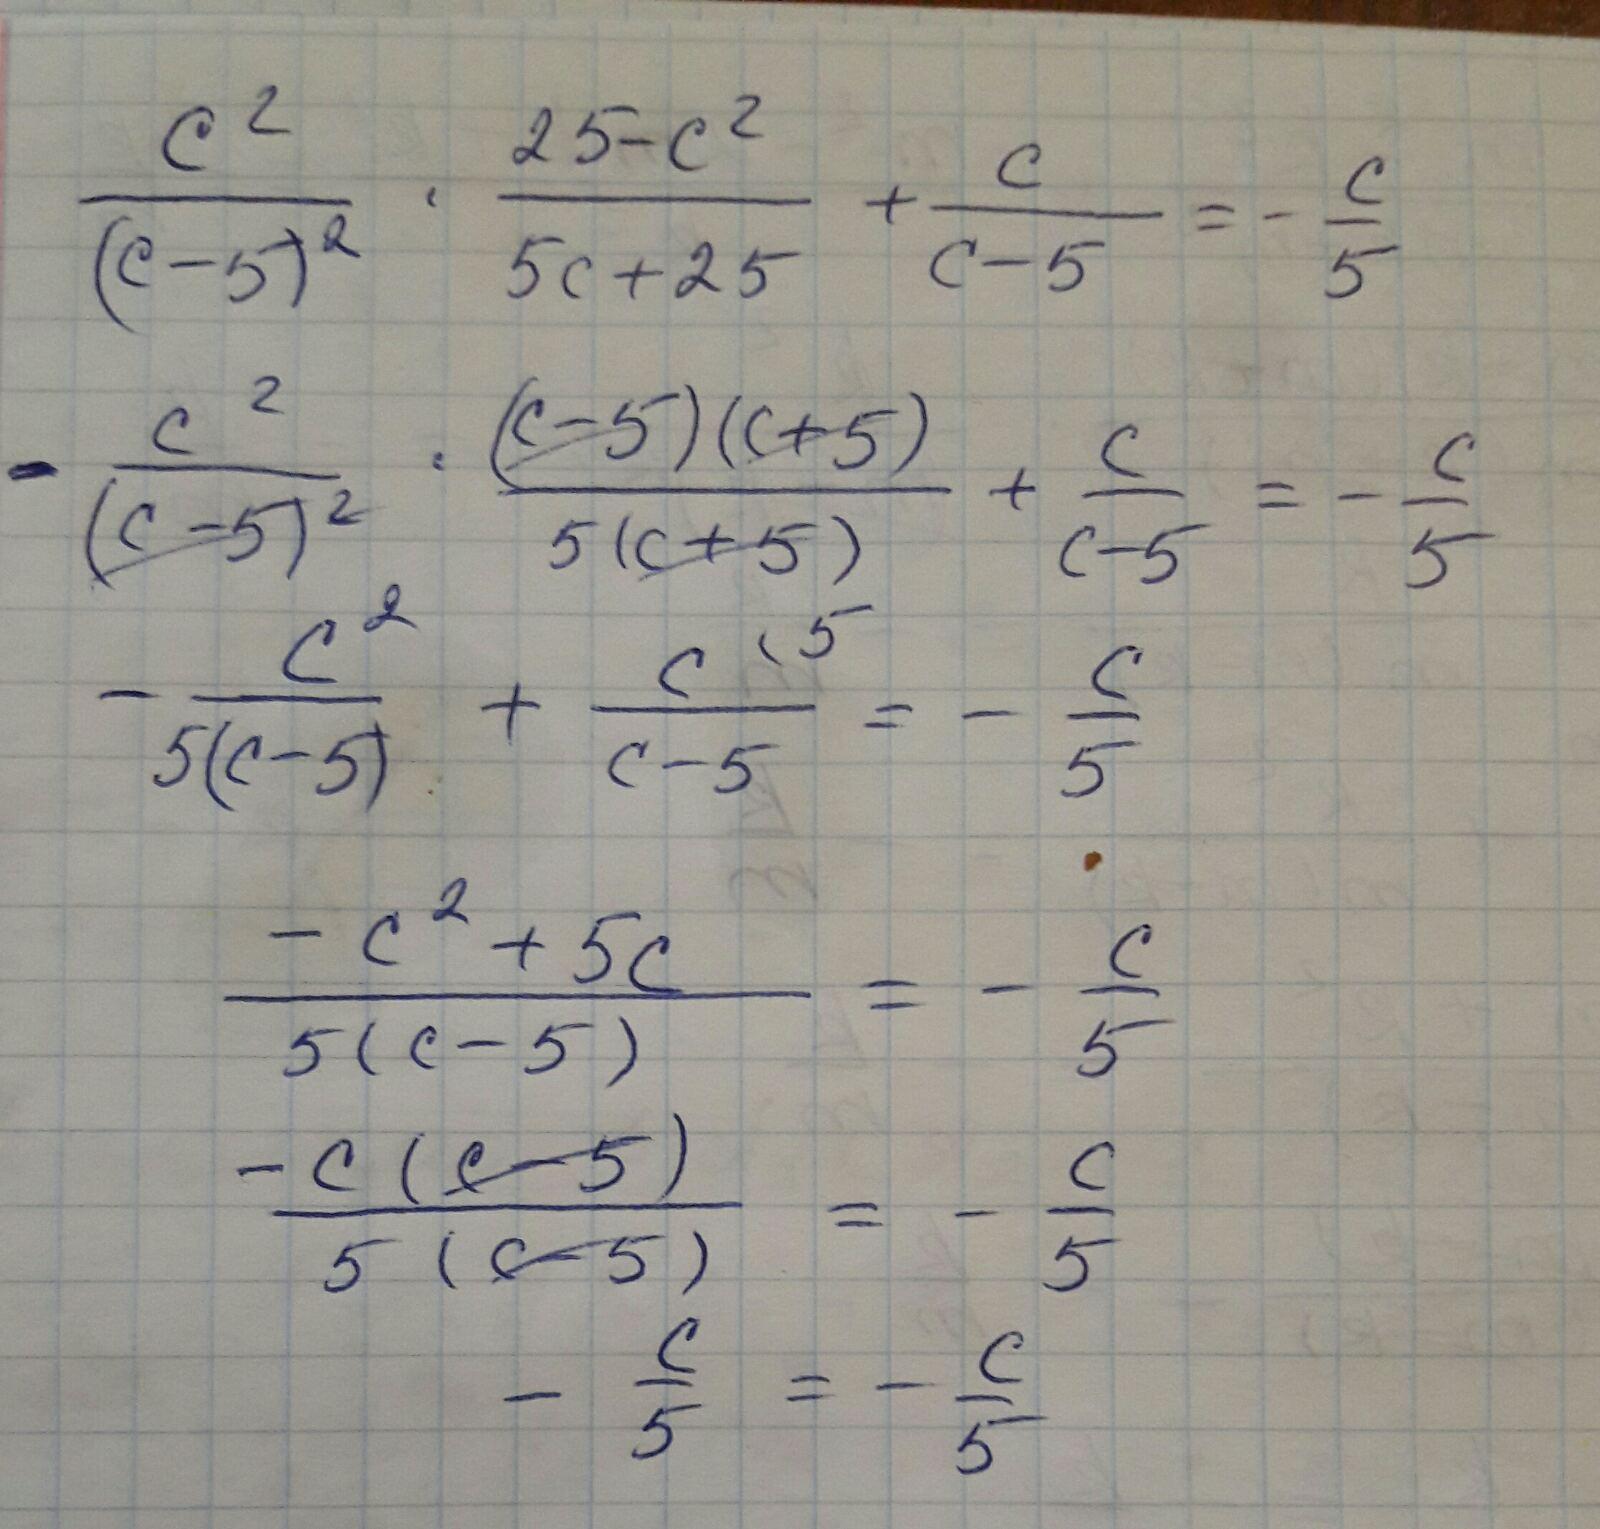 c²/(c-5)² · (25-c²)/(5c+25) + c/(c-5) = - c/5
- c²/(c-5)² · (c-5)(c+5)/5(c+5) + c/(c-5) = - c/5
- c²/5(c-5) + c (5/(c-5) = - c/5
(-c²+5c)/5(c-5) = - c/5
-c(c-5)/5(c-5) = - c/5
- c/5 = - c/5